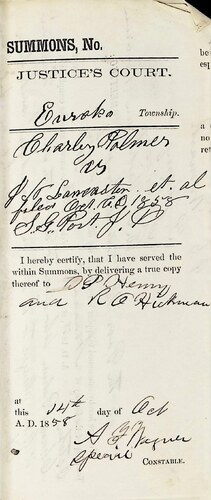 SUMMONS, No.
JUSTICE'S COURT.
Euroko Township.
Charley Palmer
vs
J T Lancaster et. al
filed Oct. A.D. 1858
S. G. Post J. P
I hereby certify, that I have served the
within Summons, by delivering a true copy
thereof to D P Henry
and R A Hickman
at
this 14th day of Oct
A. D. 1858
A Wagner
special CONSTABLE.